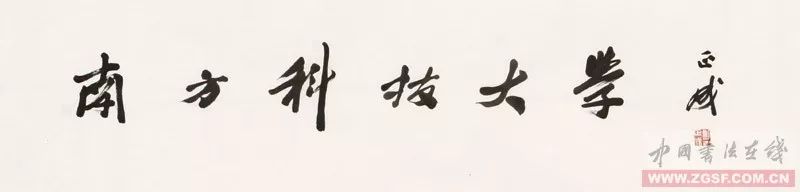 南方科技大学
正成
中国书法在线
WWW.ZGSF.COM.CN